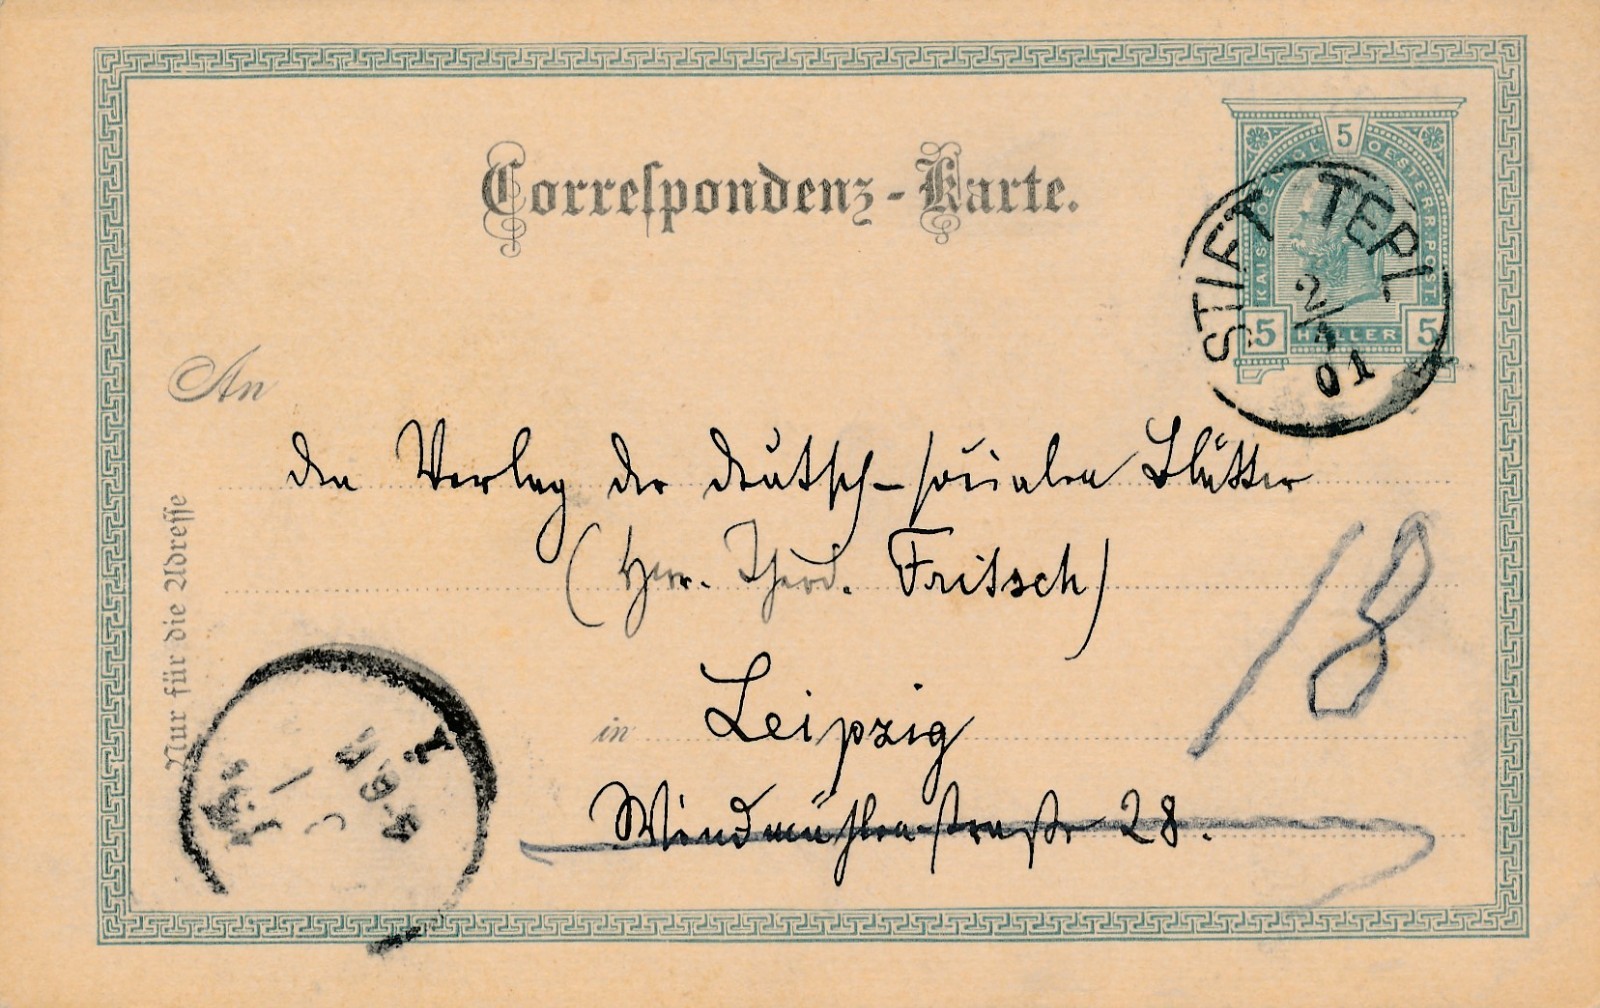 Correspondenz-Karte.
5
KAIS. KOENIGL. OESTERR. POST.
5 HELLER 5
STIFT TEPL
2/1
01
An
den Verlag der deutsch-socialen Blätter
(Herr. Theod. Fritsch)
18
in Leipzig
Windmühlenstraße 28.
Nur für die Adresse